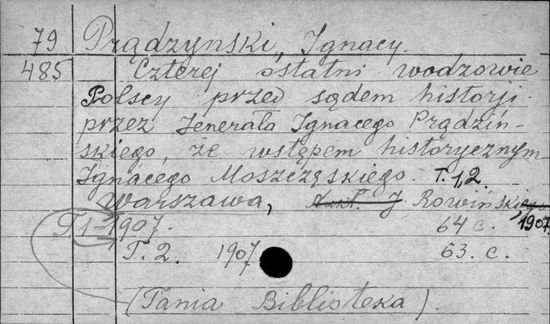 79 Prądzynski, Ignacy.
485 Czterej ostatni wodzowie
Polscy przed sądem historji
przez Jenerała Ignacego Prądziń-
skiego, ze wstępem historycznym
Ignacego Moszczęskiego. T. 1, 2.
Warszawa, J Rowiński
1907
T. 1 - 1907. 64 c.
T. 2. 1907 63. c.
(Tania Biblioteka).